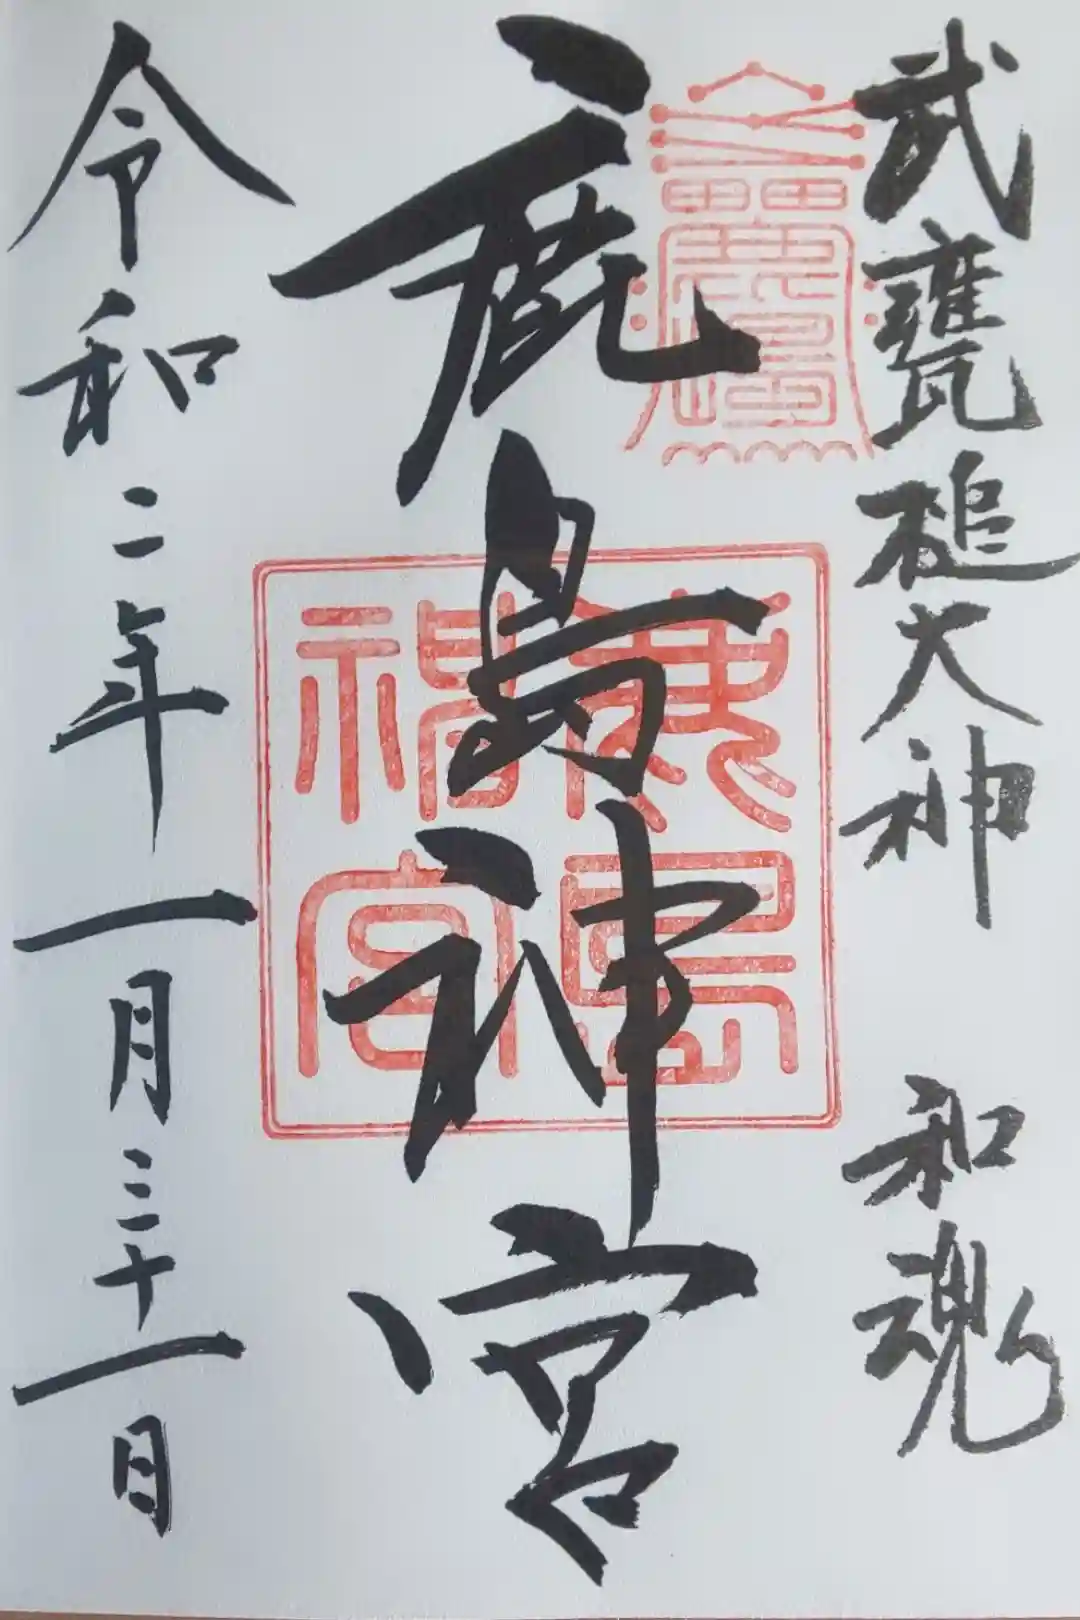 武甕槌大神 和魂
鹿島神宮
鹿島神宮
令和二年一月三十一日